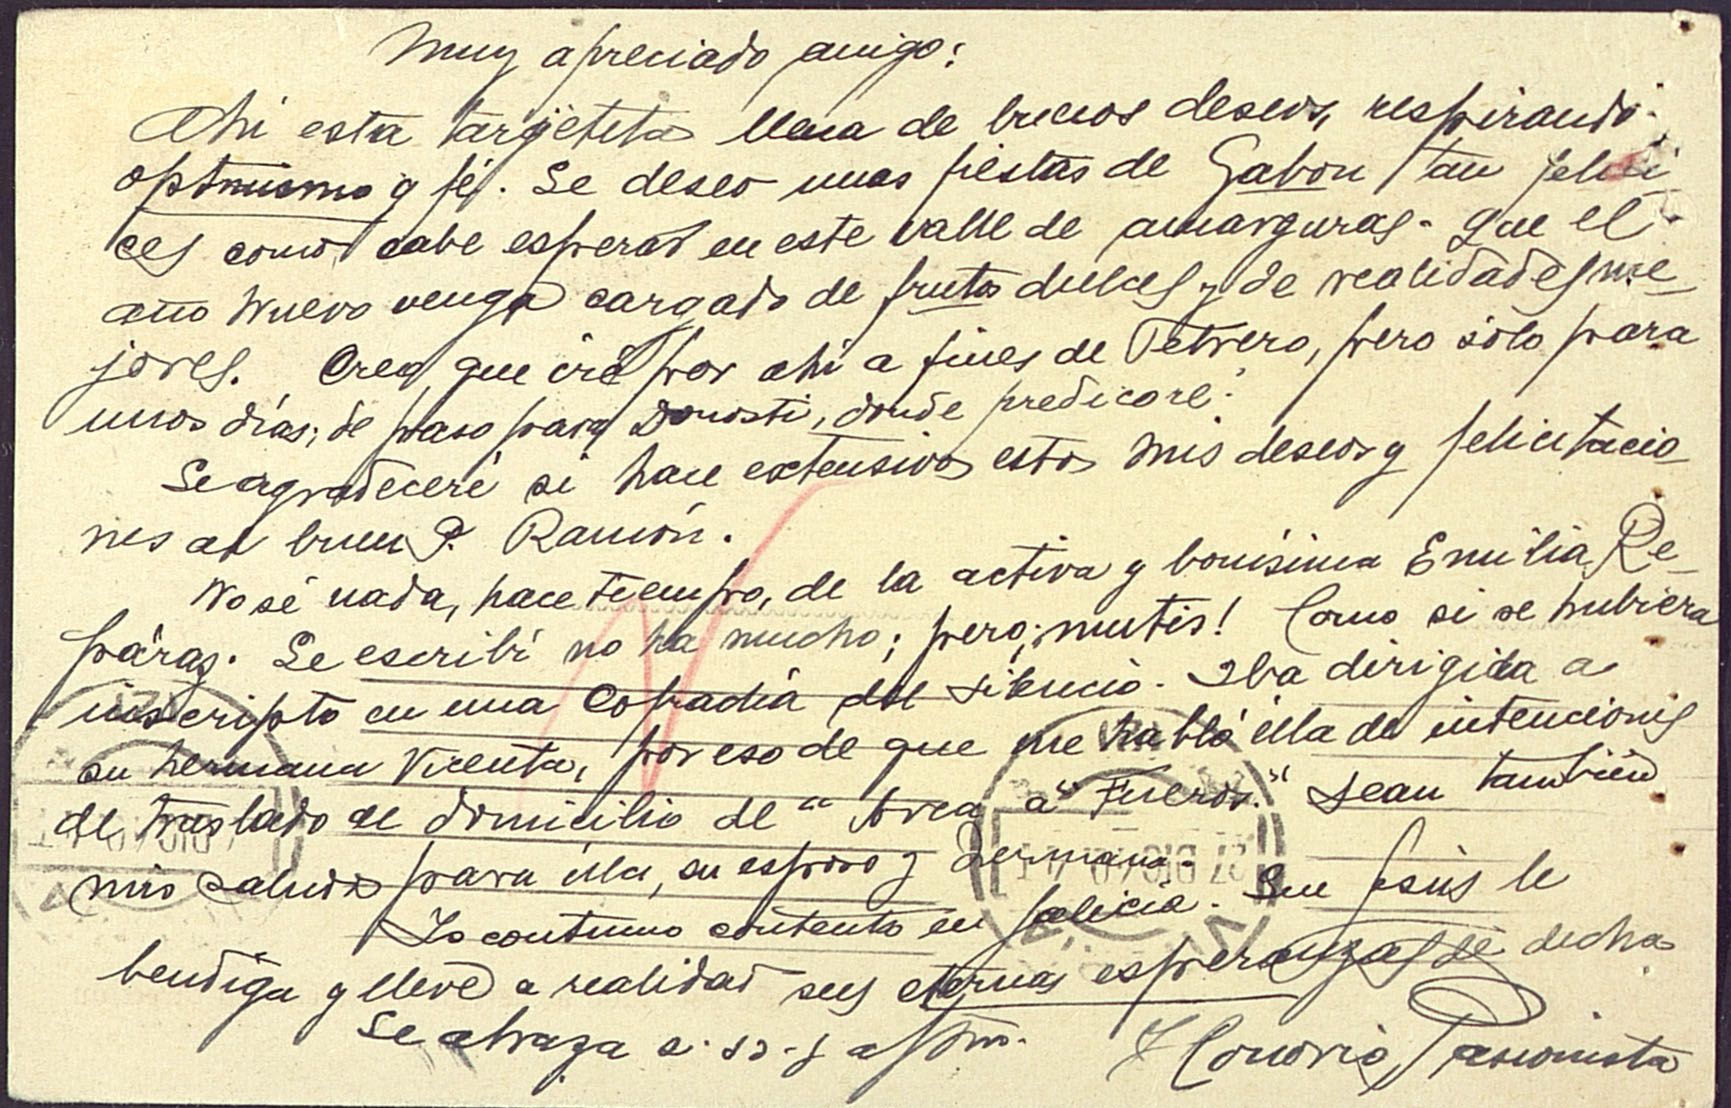 Muy apreciado amigo:
Ahí esta targetita llena de buenos deseos, respirando
optmismo y fé. Le deseo unas fiestas de Gabon tan feli
ces como cabe esperar en este valle de amarguras. Que el
año Nuevo venga cargado de frutos dulces y de realidades me-
jores. Creo, que iré por ahí a fines de Febrero, pero sólo para
unos días, de paso para Donosti, donde predicaré.
Le agradeceré si hace extensivos estos mis deseos y felicitacio-
nes al buen P. Ramón.
No sé nada, hace tiempo, de la activa y bonísima Emilia Re-
páraz. Le escribí no ha mucho; pero, mutis! Como si se hubiera
inscripto en una Cofradía del silencio. Iba dirigida a
su hermana Vicenta, por eso de que me habló élla de intenciones
de traslado de domicilio de " a "Fueros." Sean también
mis saludos para élla, su esposo y hermana.
Yo continuo contento en Galicia. Que Jesús le
bendiga y lleve a realidad sus eternas esperanzas de dicha
Le abraza s. s. y affmo.
Honorio Pasionista
27 DIC 40